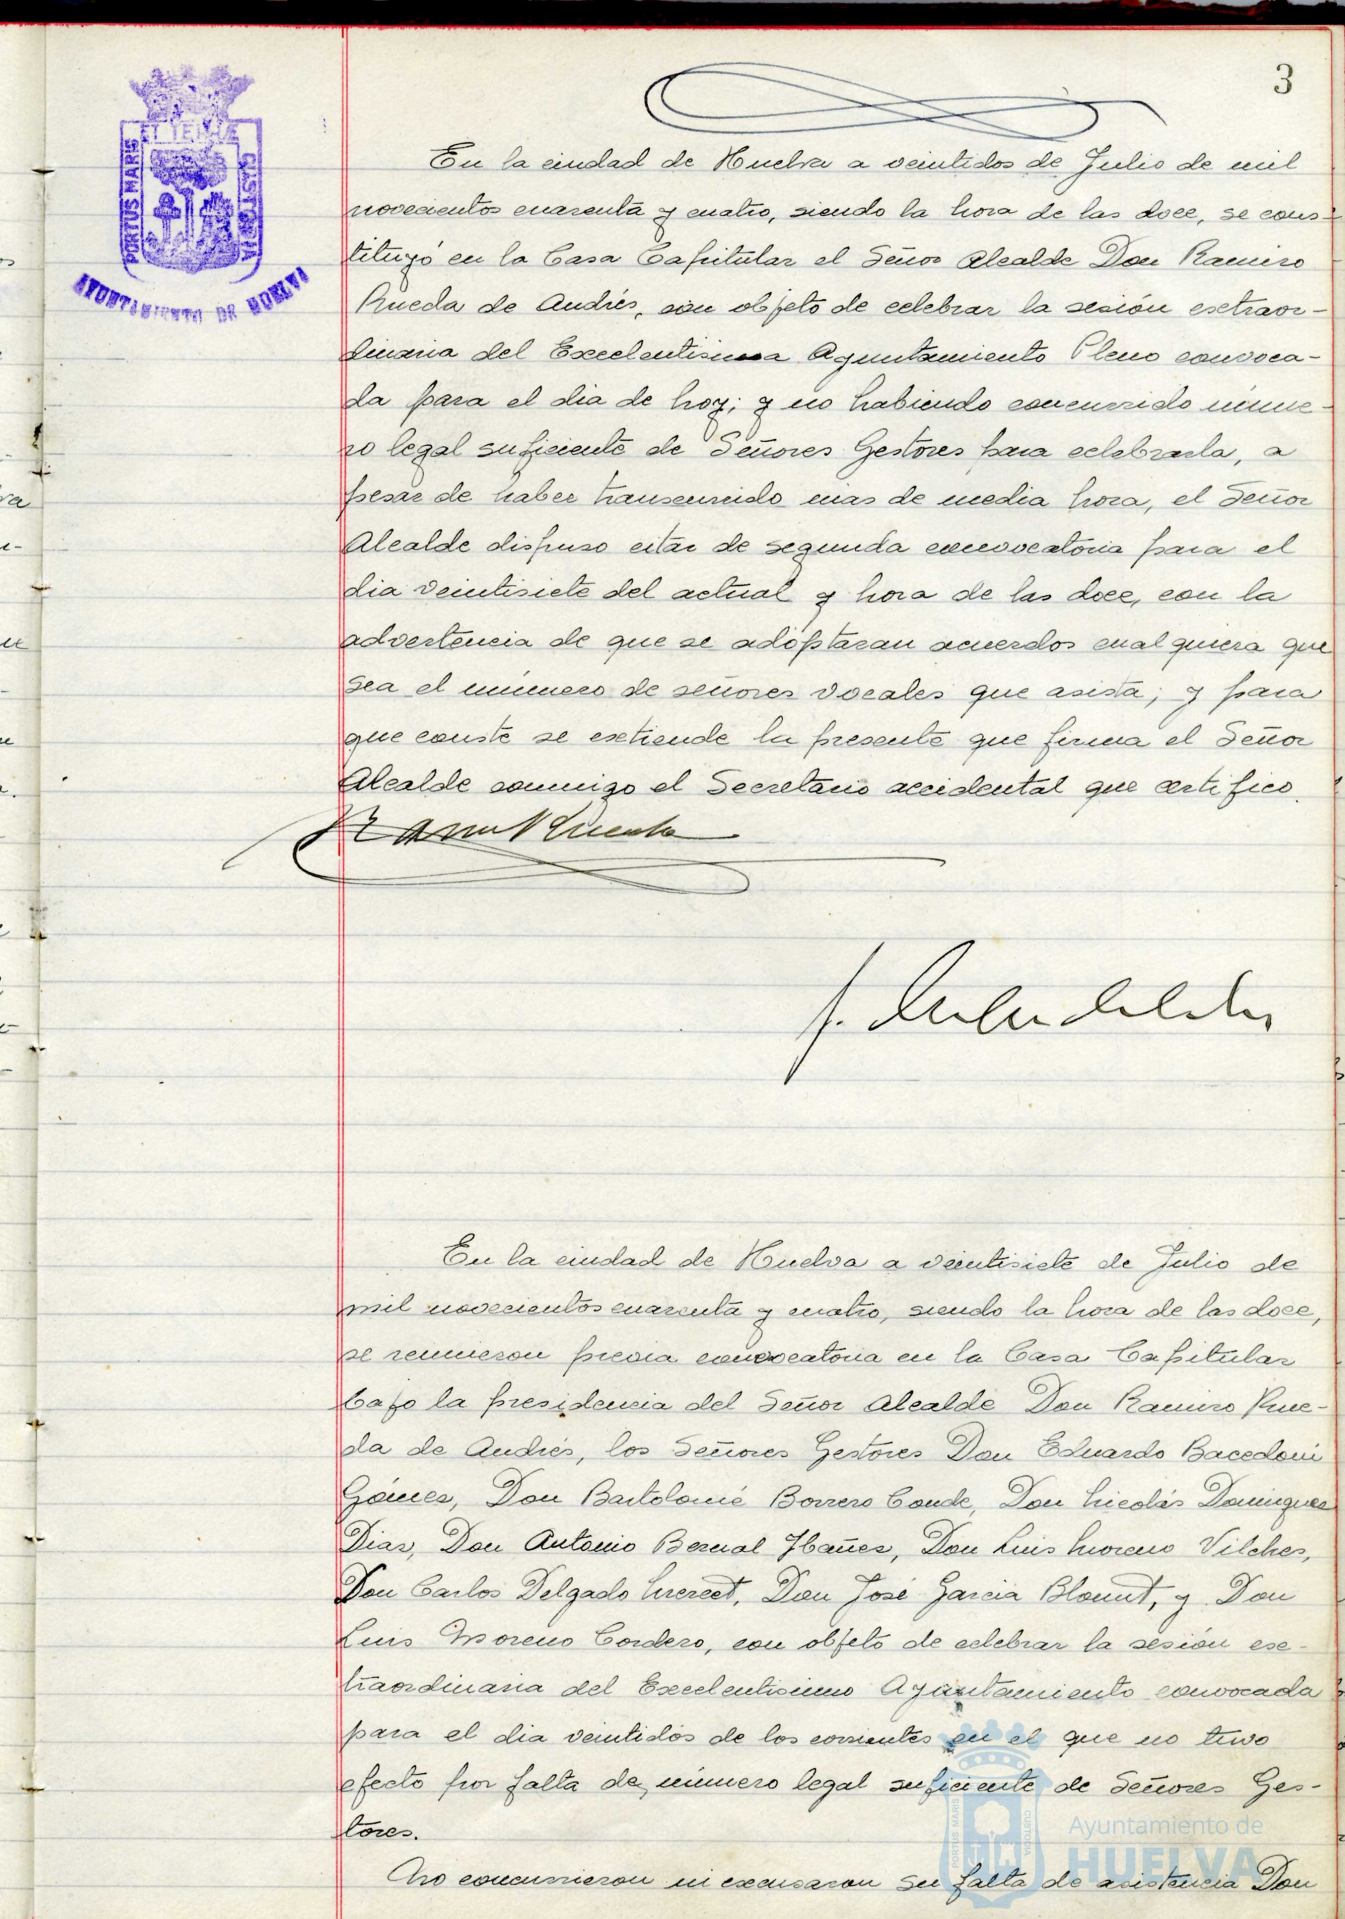 3
ET TERRÆ
PORTUS MARIS
CUSTODIA
AYUNTAMIENTO DE HUELVA
En la ciudad de Huelva a veintidos de Julio de mil
novecientos cuarenta y cuatro, siendo la hora de las doce, se cons-
tituyó en la Casa Capitular el Señor Alcalde Don Ramiro
Rueda de Andrés, con objeto de celebrar la sesión extraor-
dinaria del Excelentisima Ayuntamiento Pleno convoca-
da para el dia de hoy; y no habiendo concurrido núme-
ro legal suficiente de Señores Gestores para celebrarla, a
pesar de haber transcurrido mas de media hora, el Señor
Alcalde dispuso citar de segunda convocatoria para el
dia veintisiete del actual y hora de las doce, con la
advertencia de que se adoptaran acuerdos cualquiera que
sea el número de señores vocales que asista; y para
que conste se extiende la presente que firma el Señor
Alcalde conmigo el Secretario accidental que certifico.
En la ciudad de Huelva a veintisiete de Julio de
mil novecientos cuarenta y cuatro, siendo la hora de las doce,
se reunieron previa convocatoria en la Casa Capitular
bajo la presidencia del Señor Alcalde Don Ramiro Rue-
da de Andrés, los Señores Gestores Don Eduardo Bacedoni
Gómez, Don Bartolomé Borrero Conde, Don Nicolás Dominguez
Diaz, Don Antonio Bernal Ibañez, Don Luis Moreno Vilches,
Don Carlos Delgado Merect, Don José Garcia Blount, y Don
Luis Moreno Cordero, con objeto de celebrar la sesión ex-
traordinaria del Excelentisimo Ayuntamiento convocada
para el dia veintidós de los corrientes en el que no tuvo
efecto por falta de número legal suficiente de Señores Ges-
tores.
No concurrieron ni excusaron su falta de asistencia Don
PORTUS MARIS
CUSTODIA
Ayuntamiento de
HUELVA